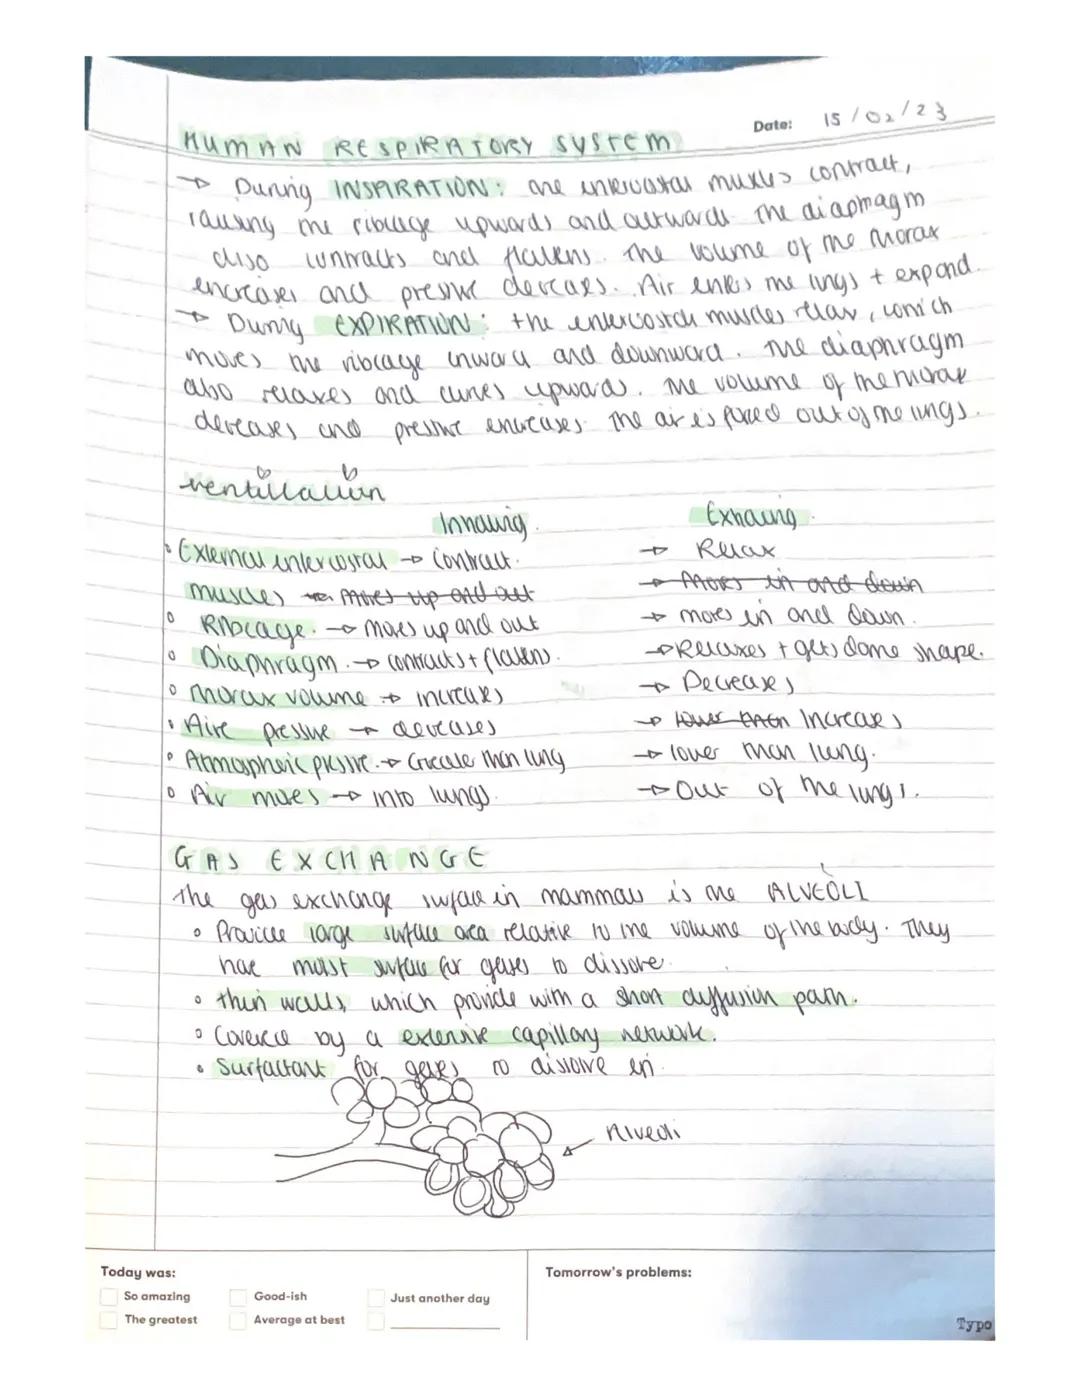 Date: 15/02/23
HUMAN RESPIRATORY SYSTEM
→ During INSPIRATION: the intercostal muscles contract,
raising the ribcage upwards and outwards. The diaphragm
also contracts and flattens. The volume of the thorax
encreases and pressure decreases. Air enters the lungs + expand.
→ During EXPIRATION: the entercostal muscles relax, which
moves the ribcage inward and downward. The diaphragm
also relaxes and curves upwards. The volume of the thorax
decreases and pressure encreases. The air is forced out of the lungs.
ventillation
Inhaling. Exhaling.
• External intercostal → Contract. → Relax
muscles → Moves up and out → Moves in and down
• Ribcage. → moves up and out → moves in and down.
• Diaphragm. → contracts + flattens. → Relaxes + gets dome shape.
• Thorax volume → increases → Decreases
• Aire pressure → decreases → lower than Increases
• Atmospheric pressure. → Greater than lung → lower than lung.
• Air moves → into lungs. → Out of the lungs.
GAS EXCHANGE
The gas exchange surface in mammals is the ALVEOLI
• Provide large surface area relative to the volume of the body. They
have moist surface for gases to dissolve.
• thin walls, which provide with a short diffusion path.
• Covered by a extensive capillary network.
• Surfactant for gases to dissolve in.
Alveoli
Today was:
So amazing Good-ish Just another day
The greatest Average at best
Tomorrow's problems:
Typo